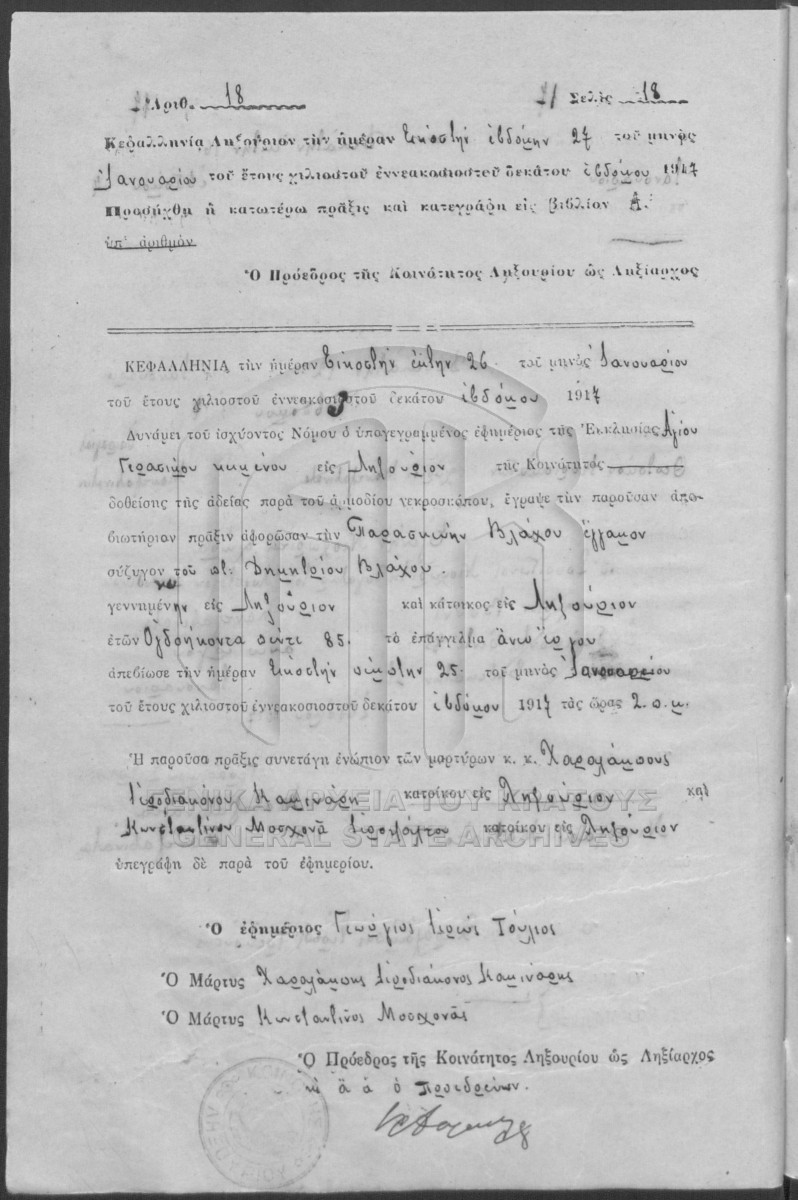 Ἀριθ. 18 Σελὶς 18
Κεφαλληνία Ληξούριον τὴν ἡμέραν Εἰκοστὴν ἑβδόμην 27 τοῦ μηνὸς
Ἰανουαρίου τοῦ ἔτους χιλιοστοῦ ἐννεακοσιοστοῦ δεκάτου ἑβδόμου 1917
Προσήχθη ἡ κατωτέρω πρᾶξις καὶ κατεγράφη εἰς βιβλίον Α.
ὑπ' ἀριθμὸν
Ὁ Πρόεδρος τῆς Κοινότητος Ληξουρίου ὡς Ληξίαρχος
ΚΕΦΑΛΛΗΝΙΑ τὴν ἡμέραν Εἰκοστὴν ἕκτην 26 τοῦ μηνὸς Ἰανουαρίου
τοῦ ἔτους χιλιοστοῦ ἐννεακοσιοστοῦ δεκάτου ἑβδόμου 1917
Δυνάμει τοῦ ἰσχύοντος Νόμου ὁ ὑπογεγραμμένος ἐφημέριος τῆς Ἐκκλησίας Ἁγίου
Γερασίμου κειμένου εἰς Ληξούριον τῆς Κοινότητος
δοθείσης τῆς ἀδείας παρὰ τοῦ ἁρμοδίου νεκροσκόπου, ἔγραψε τὴν παροῦσαν ἀπο-
βιωτήριον πρᾶξιν ἀφορῶσαν τὴν Παρασκευὴν Βλάχου ἔγγαμον
σύζυγον τοῦ π. Δημητρίου Βλάχου.
γεννημένην εἰς Ληξούριον καὶ κάτοικος εἰς Ληξούριον
ἐτῶν Ὀγδοήκοντα πέντε 85. τὸ ἐπάγγελμα ἄνευ ἔργου
ἀπεβίωσε τὴν ἡμέραν Εἰκοστὴν πέμπτην 25 τοῦ μηνὸς Ἰανουαρίου
τοῦ ἔτους χιλιοστοῦ ἐννεακοσιοστοῦ δεκάτου ἑβδόμου 1917 τὰς ὥρας 2. π.μ.
Ἡ παροῦσα πρᾶξις συνετάγη ἐνώπιον τῶν μαρτύρων κ. κ. Χαραλάμπους
Ἱεροδιακόνου Καμινάρη κατοίκου εἰς Ληξούριον καὶ
Κωνσταντίνου Μοσχονᾶ Ἱεροψάλτου κατοίκου εἰς Ληξούριον
ΓΕΝΙΚΑ ΑΡΧΕΙΑ ΤΟΥ ΚΡΑΤΟΥΣ
GENERAL STATE ARCHIVES
ὑπεγράφη δὲ παρὰ τοῦ ἐφημερίου.
Ὁ ἐφημέριος Γεώργιος Ἱερεὺς Τούλιος
Ὁ Μάρτυς Χαραλάμπης Ἱεροδιάκονος Καμινάρης
Ὁ Μάρτυς Κωνσταντῖνος Μοσχονᾶς
Ὁ Πρόεδρος τῆς Κοινότητος Ληξουρίου ὡς Ληξίαρχος
κ ἀ ἀ ὁ προεδρεύων.